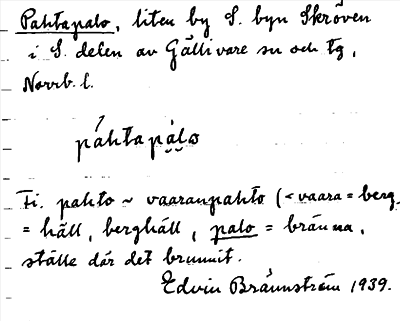 Pahtapalo, liten by S. byn Skröven
i S. delen av Gällivare sn och tg,
Norrb. l.
páhtapàlo
Fi. pahto ~ vaaranpahto (< vaara = berg
= häll, berghäll, palo = bränna,
ställe där det brunnit.
Edvin Brännström 1939.